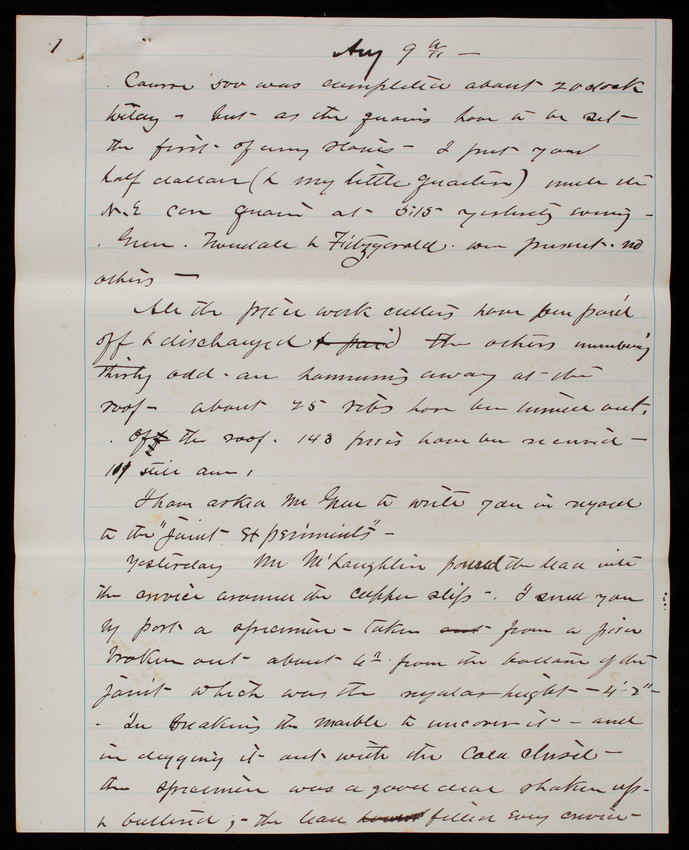 1
Aug 9th —
Course 500 was completed about 2 o'clock
today - but as the quoins have to be set
the first of any stones - I put your
half dollar (& my little quarter) under the
N.E. cor quoin at 5:15 yesterday evening -
Green. Trendale & Fitzgerald. were present. no
others —
All the piece work cutters have been paid
off & discharged & paid the others numbering
thirty odd - are hammering away at the
roof - about 25 ribs have been turned out.
Of the roof. 143 pieces have been received -
still are,
I have asked Mr Green to write you in regard
to the "Joint Experiments" -
Yesterday Mr McLaughlin poured the lead into
the crevice around the copper slips -. I send you
by post a specimen - taken out from a piece
broken out about 6" from the bottom of the
joint which was the regular height - 4'-2" -
- In breaking the marble to uncover it - and
in digging it out with the cold chisel -
the specimen was a good deal shaken up -
& battered ; - the lead filled every crevice -